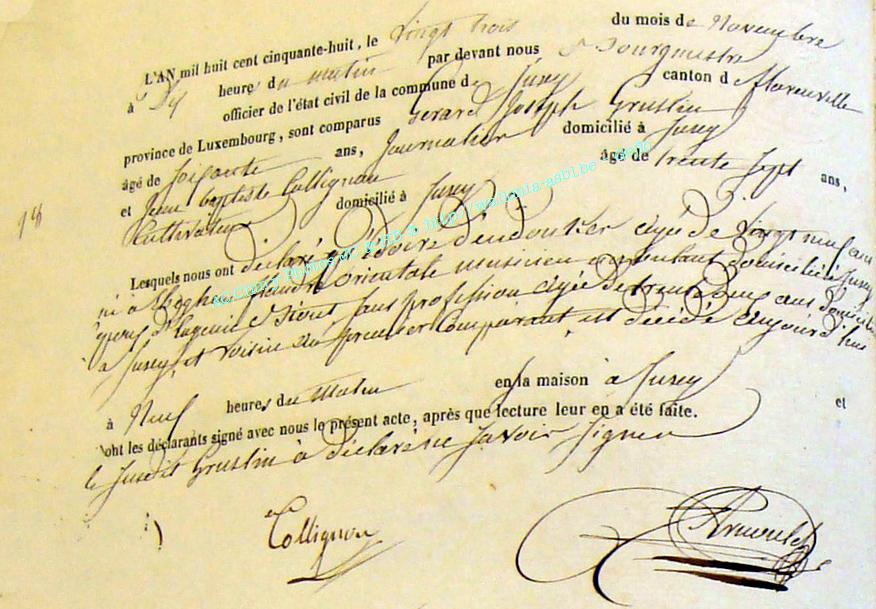 L'AN mil huit cent cinquante-huit, le vingt trois du mois de Novembre
à Dix heures du matin par devant nous Bourgmestre
officier de l'état civil de la commune de Jusey canton d flarenville
province de Luxembourg, sont comparus Gerard Joseph Gruslin
âgé de soixante ans, Journalier domicilié à Jusey
et Jean baptiste Collignon âgé de trente sept ans,
Cultivateur domicilié à Jusey
Lesquels nous ont déclaré q agée de vingt neuf ans
né à flandre Orientale musicien ambulant domicilié à Jusey
sans profession agée de trente ans domicilié
à Jusey, et voisin du premier Comparant, est décédé aujourd'hui
à Neuf heures du Matin en la maison à Jusey et
ont les déclarants signé avec nous le présent acte, après que lecture leur en a été faite.
le susdit Gruslin à déclaré ne savoir signer
Collignon